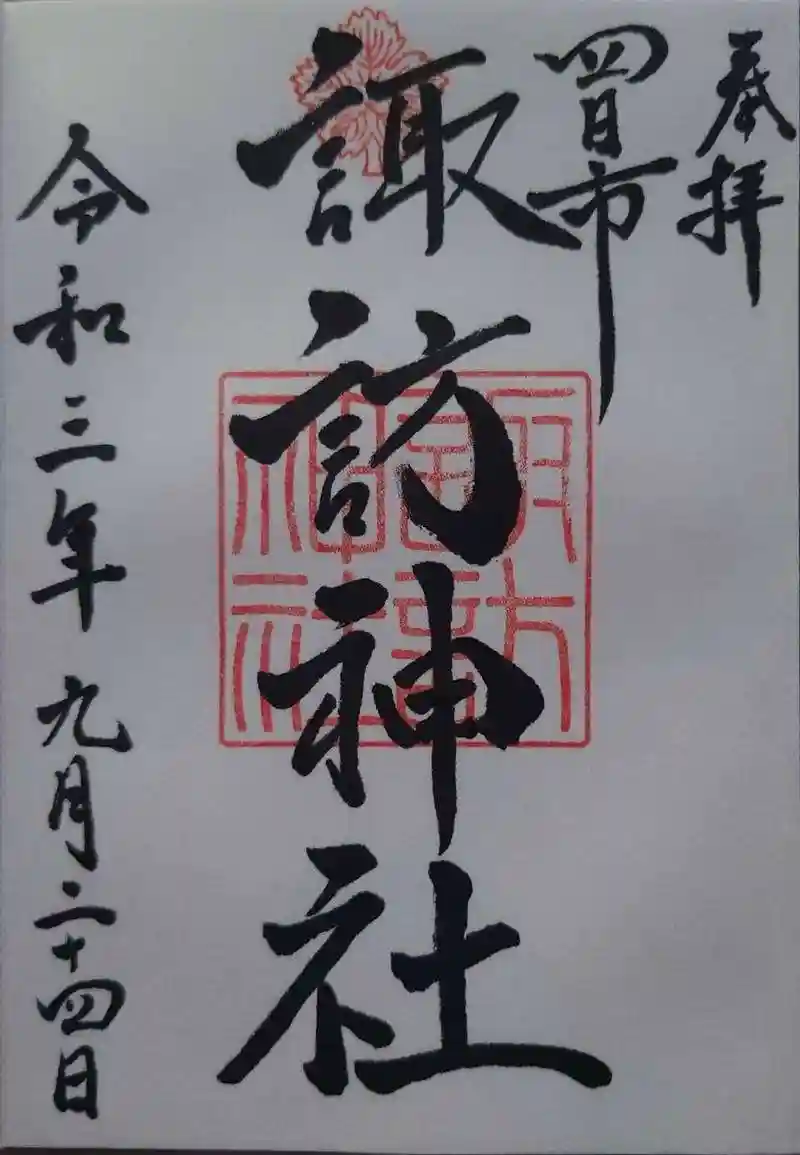 奉拝
四日市
諏訪神社
諏訪神社
令和三年九月二十四日